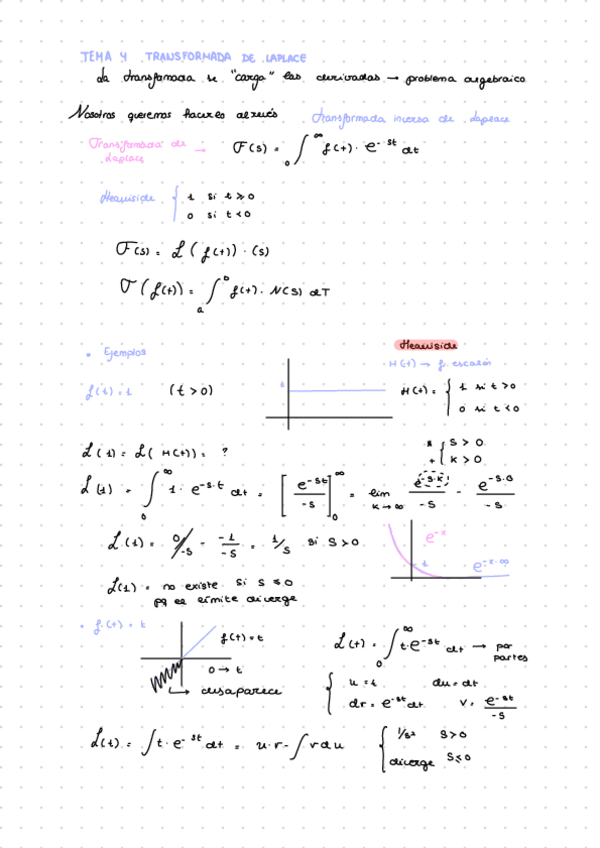 TEMA 4 TRANSFORMADA DE LAPLACE
La transformada se "carga" las derivadas → problema algebraico
Nosotros queremos hacerlo al revés transformada inversa de Laplace
Transformada de Laplace → F(s) = ∫₀^∞ f(t) · e^-st dt
Heaviside { 1 si t ≥ 0
0 si t < 0
F(s) = L(f(t)) · (s)
T(f(t)) = ∫ₐ^b f(t) · N(s) dT
• Ejemplos
Heaviside
H(t) → f. escalón
f(t) = 1 (t > 0)
1
H(t) = { 1 si t > 0
0 si t < 0
L(1) = L(H(t)) = ?
* { s > 0
+ { k > 0
L(1) = ∫₀^∞ 1 · e^-s·t dt = [e^-st / -s]₀^∞ = lim k→∞ e^-s·k / -s - e^-s·0 / -s
L(1) = 0/-s - -1/-s = 1/s si s > 0
e^-x
1
e^-x·∞
L(1) = no existe si s ≤ 0
pq el límite diverge
• f(t) = t
f(t) = t
0 → t
desaparece
L(t) = ∫₀^∞ t · e^-st dt → por partes
{ u = t du = dt
dv = e^-st dt v = e^-st / -s
L(t) = ∫ t · e^-st dt = u·v - ∫ v du { 1/s² s > 0
diverge s ≤ 0